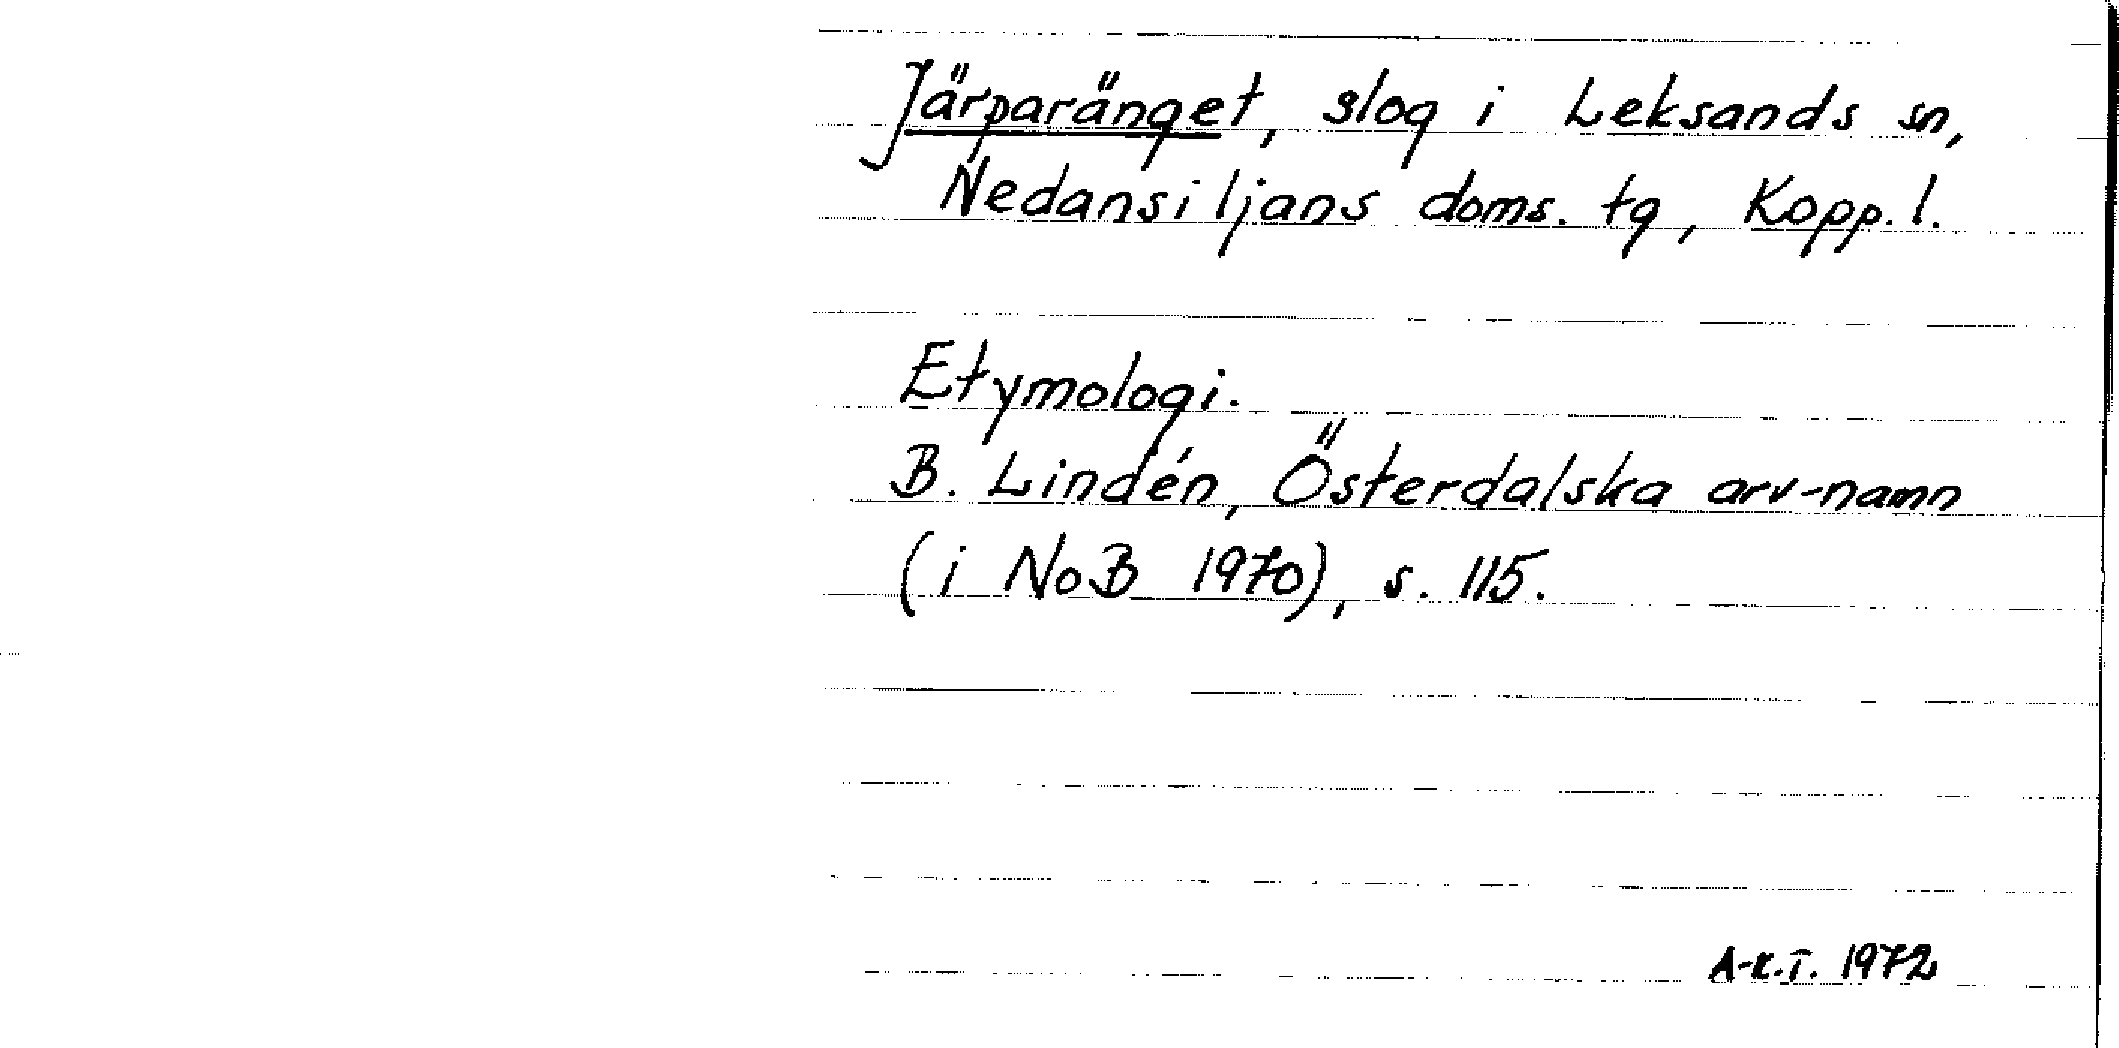 Järparänget, slog i Leksands sn,
Nedansiljans doms. tg, Kopp. l.
Etymologi.
B. Lindén, Österdalska arv-namn
(i NoB 1970), s. 115.
A-K.T. 1972